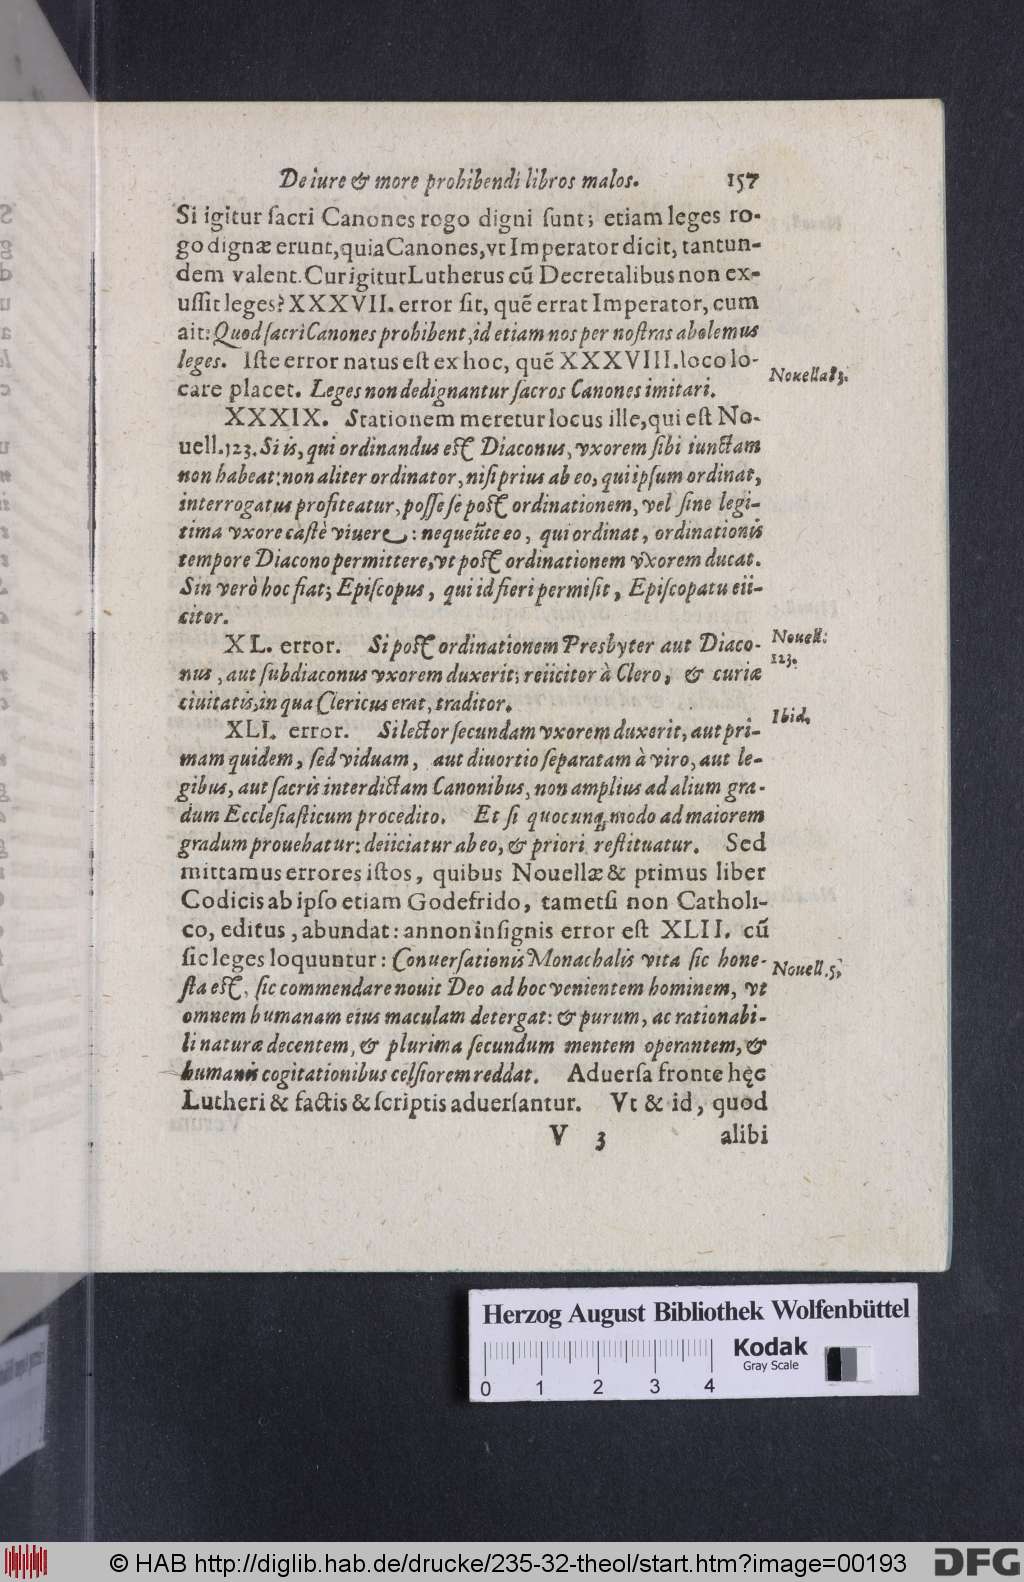 De iure & more prohibendi libros malos. 157
Si igitur ſacri Canones rogo digni ſunt; etiam leges ro-
go dignæ erunt, quia Canones, vt Imperator dicit, tantun-
dem valent. Cur igitur Lutherus cũ Decretalibus non ex-
uſſit leges? XXXVII. error ſit, quẽ errat Imperator, cum
ait: Quod ſacri Canones prohibent, id etiam nos per noſtras abolemus
leges. Iſte error natus eſt ex hoc, quẽ XXXVIII. loco lo-
care placet. Leges non dedignantur ſacros Canones imitari.
Nouella 83.
XXXIX. Stationem meretur locus ille, qui eſt No-
uell. 123. Si is, qui ordinandus eſt Diaconus, vxorem ſibi iunctam
non habeat: non aliter ordinator, niſi prius ab eo, qui ipſum ordinat,
interrogatus profiteatur, poſſe ſe poſt ordinationem, vel ſine legi-
tima vxore caſtè viuere: neque ũte eo, qui ordinat, ordinationis
tempore Diacono permittere, vt poſt ordinationem vxorem ducat.
Sin verò hoc fiat; Epiſcopus, qui id fieri permiſit, Epiſcopatu eii-
citor.
XL. error. Si poſt ordinationem Presbyter aut Diaco-
nus, aut ſubdiaconus vxorem duxerit; reiicitor à Clero, & curiæ
ciuitatis, in qua Clericus erat, traditor.
Nouell:
123.
XLI. error. Si lector ſecundam vxorem duxerit, aut pri-
mam quidem, ſed viduam, aut diuortio ſeparatam à viro, aut le-
gibus, aut ſacris interdictam Canonibus, non amplius ad alium gra-
dum Eccleſiaſticum procedito. Et ſi quocunq; modo ad maiorem
gradum prouehatur: deiiciatur ab eo, & priori reſtituatur. Sed
Ibid.
mittamus errores iſtos, quibus Nouellæ & primus liber
Codicis ab ipſo etiam Godefrido, tametſi non Catholi-
co, editus, abundat: annon inſignis error eſt XLII. cũ
ſic leges loquuntur: Conuerſationis Monachalis vita ſic hone-
ſta eſt, ſic commendare nouit Deo ad hoc venientem hominem, vt
omnem humanam eius maculam detergat: & purum, ac rationabi-
li naturæ decentem, & plurima ſecundum mentem operantem, &
humanis cogitationibus celſiorem reddat. Aduerſa fronte hęc
Lutheri & factis & ſcriptis aduerſantur. Vt & id, quod
Nouell. 5.
V 3 alibi
Herzog August Bibliothek Wolfenbüttel
Kodak
Gray Scale
0 1 2 3 4
© HAB http://diglib.hab.de/drucke/235-32-theol/start.htm?image=00193
DFG